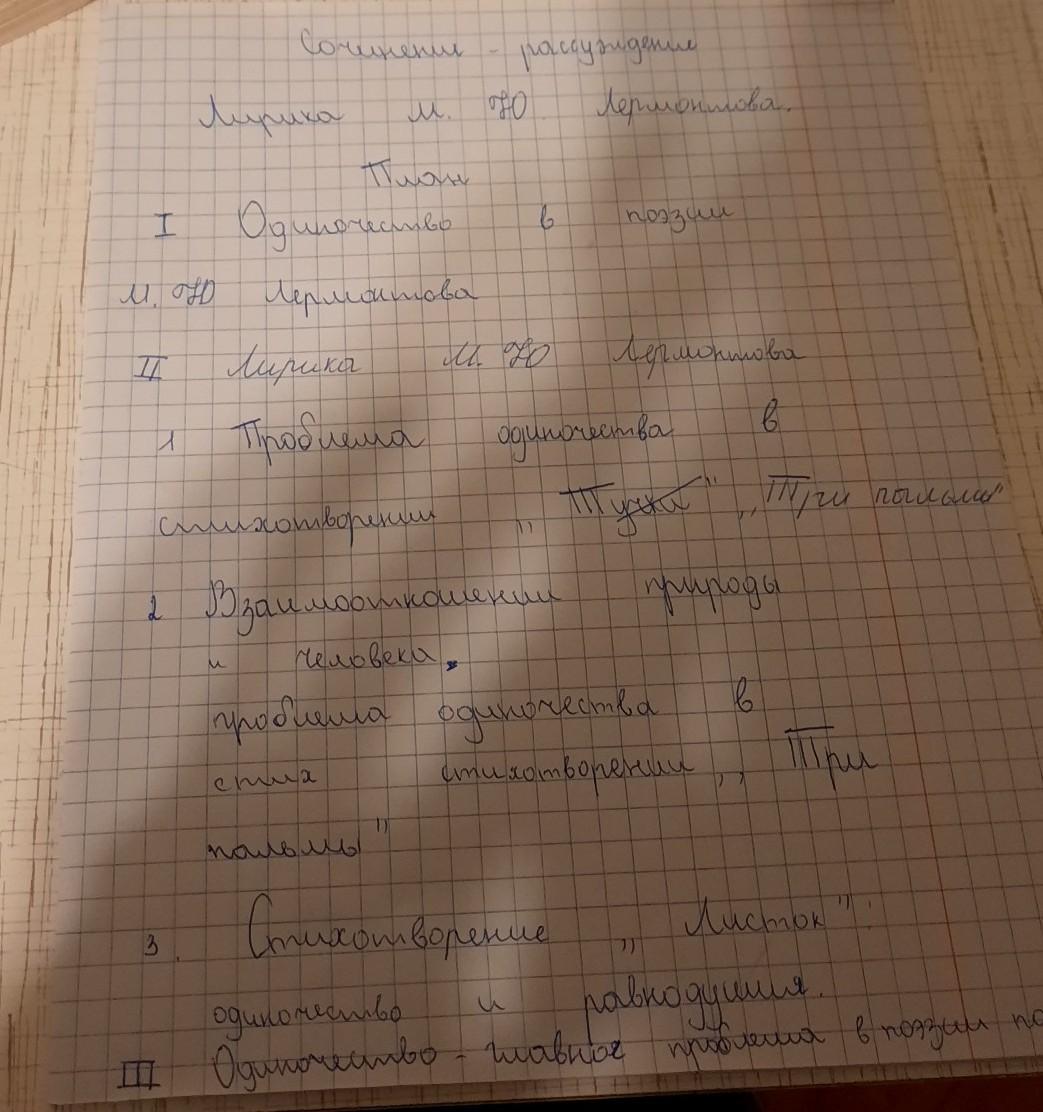 Сочинение - рассуждение
Лирика М. Ю. Лермонтова.
План
I Одиночество в поэзии
М. Ю Лермонтова
II Лирика М. Ю Лермонтова
1 Проблема одиночества в
стихотворении „Тучки" „Три пальмы"
2 Взаимоотношении природы
и человека,
проблема одиночества в
стих стихотворении „Три
пальмы"
3. Стихотворение „Листок":
одиночество и равнодушия.
III Одиночество - главное проблема в поэзии по